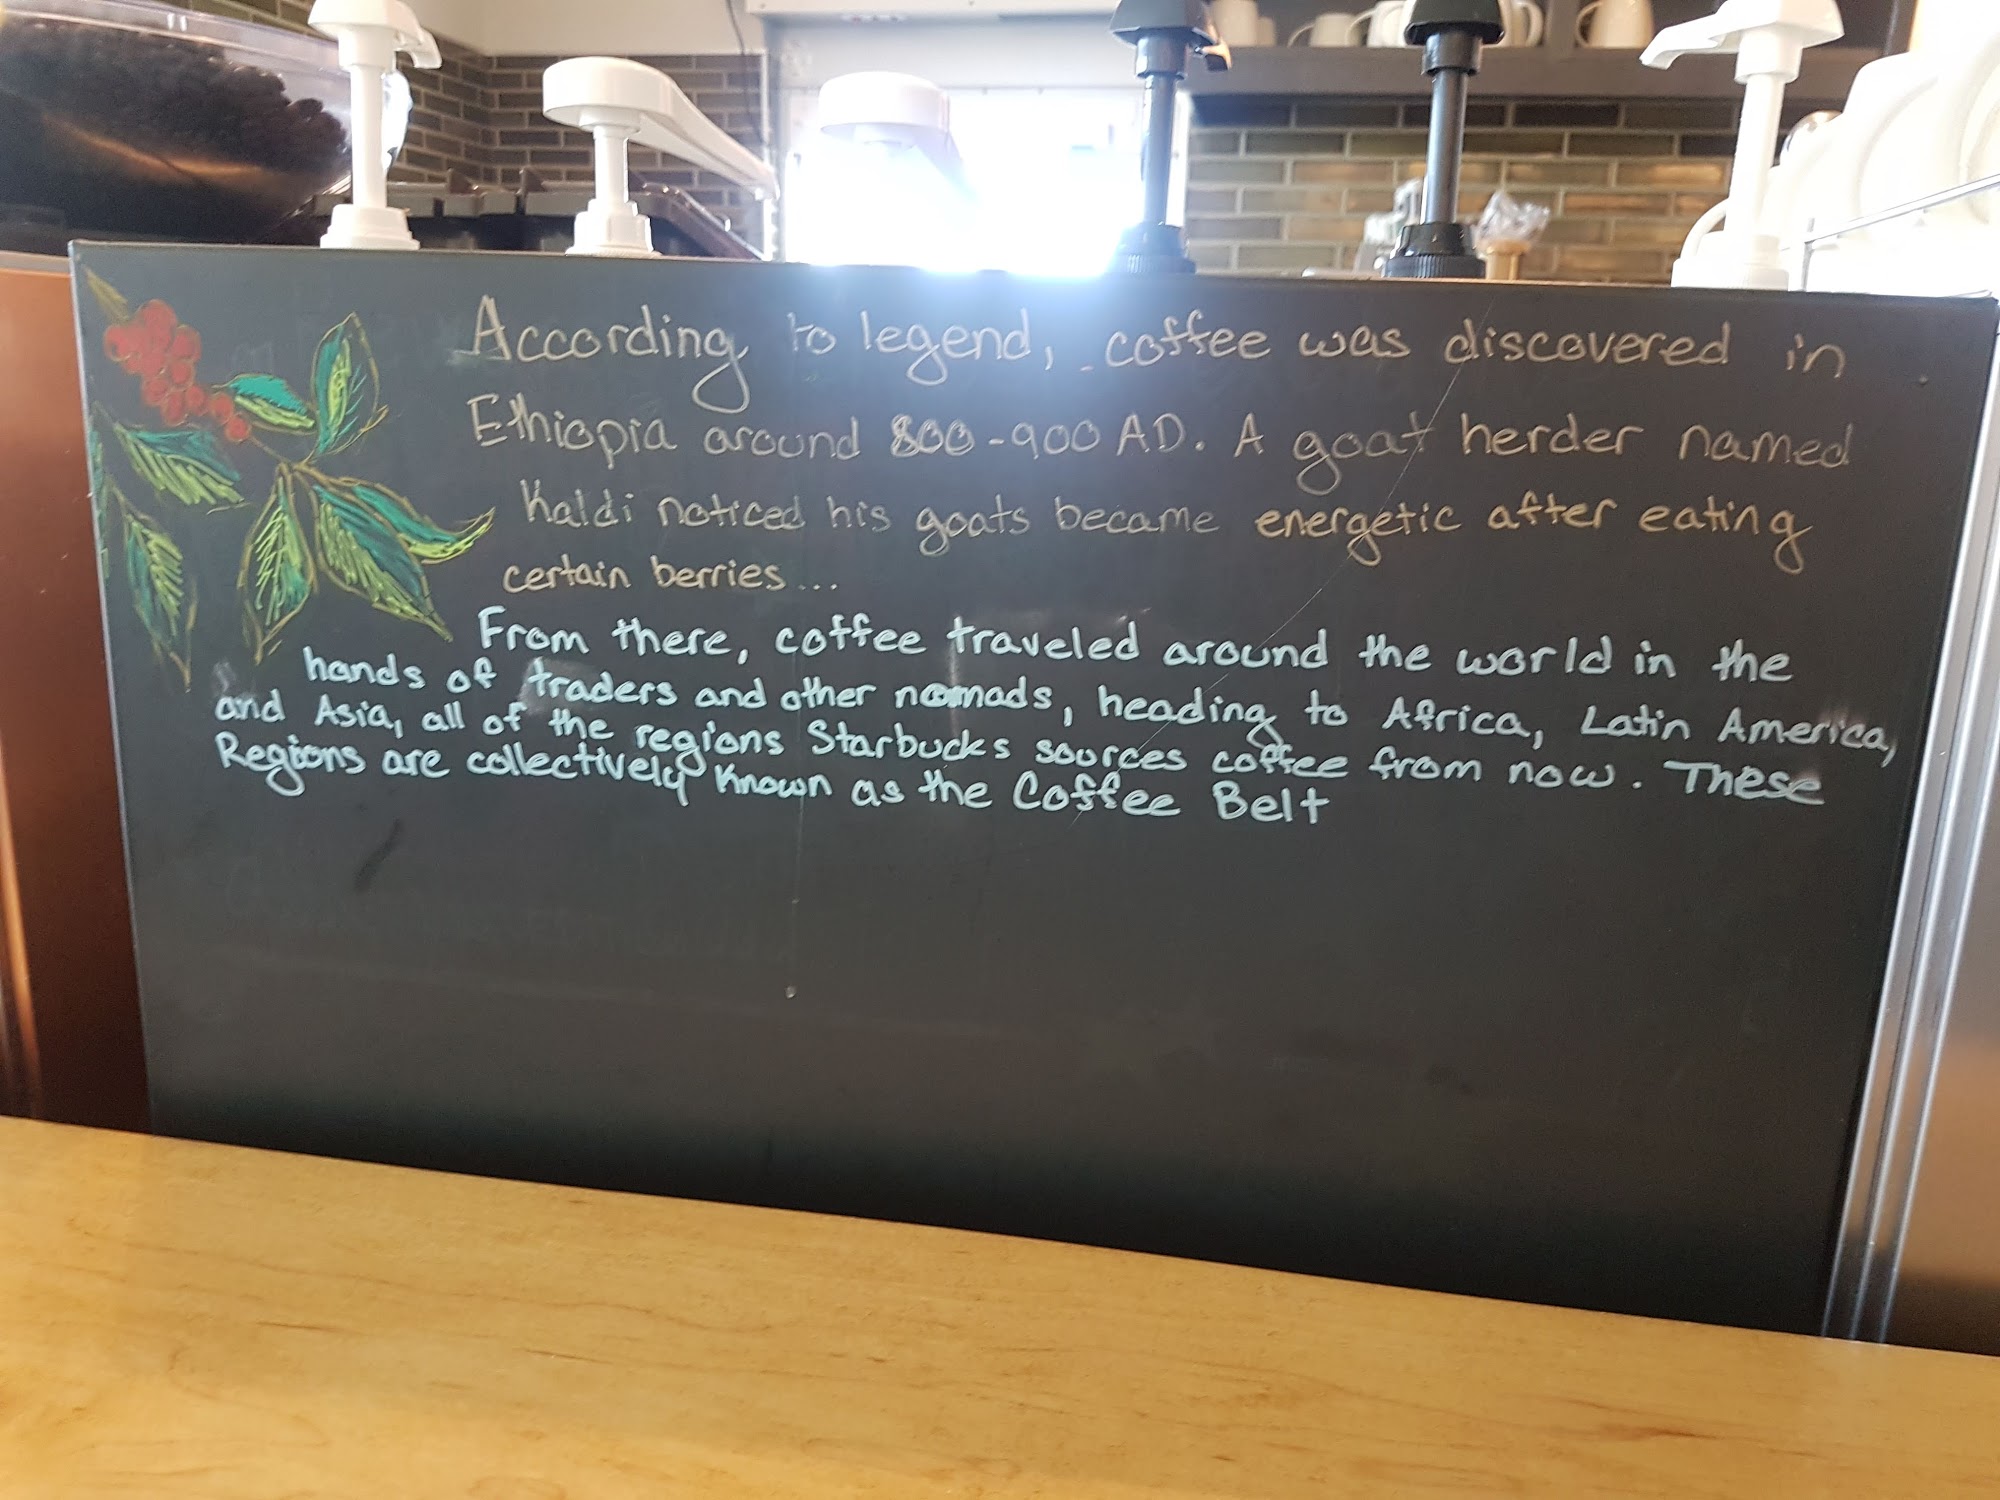 According to legend, coffee was discovered in
Ethiopia around 800-900 AD. A goat herder named
Kaldi noticed his goats became energetic after eating
certain berries...
From there, coffee traveled around the world in the
hands of traders and other nomads, heading to Africa, Latin America,
and Asia, all of the regions Starbucks sources coffee from now. These
Regions are collectively known as the Coffee Belt